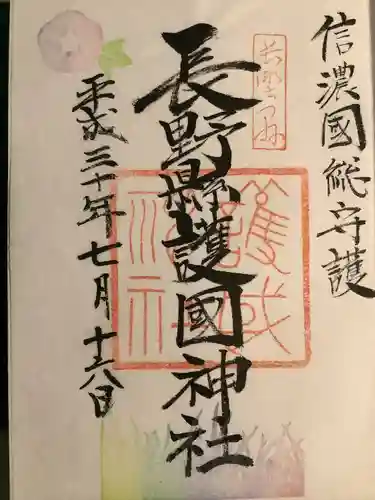 信濃國総守護
長野縣護國神社
平成三十年七月十六日